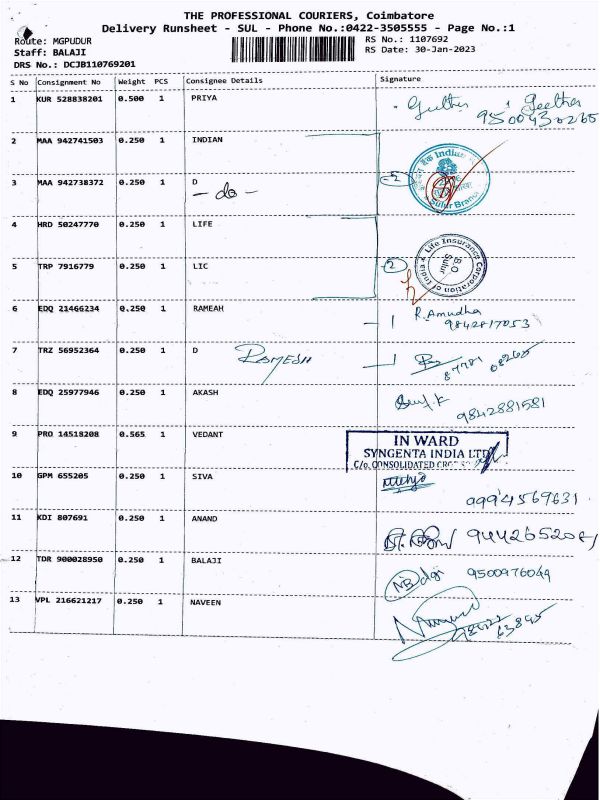 THE PROFESSIONAL COURIERS, Coimbatore
Delivery Runsheet - SUL - Phone No.:0422-3505555 - Page No.:1
Route: MGPUDUR
Staff: BALAJI
DRS No.: DCJB110769201
RS No.: 1107692
RS Date: 30-Jan-2023
S No Consignment No Weight PCS Consignee Details Signature
1 KUR 528838201 0.500 1 PRIYA
Geetha
2 MAA 942741503 0.250 1 INDIAN
3 MAA 942738372 0.250 1 D
- do - 2
Indian
Sulur Branch
4 HRD 50247770 0.250 1 LIFE
5 TRP 7916779 0.250 1 LIC
2
Life Insurance Corporation of India
B.O
Sulur
6 EDQ 21466234 0.250 1 RAMEAH
R. Amudha
9842817053
7 TRZ 56952364 0.250 1 D RAMESH
8 EDQ 25977946 0.250 1 AKASH
9842881581
9 PRO 14518208 0.565 1 VEDANT
IN WARD
SYNGENTA INDIA LTD
C/o. CONSOLIDATED
10 GPM 655205 0.250 1 SIVA
9994569631
11 KDI 807691 0.250 1 ANAND
12 TDR 900028950 0.250 1 BALAJI
9500976049
13 VPL 216621217 0.250 1 NAVEEN